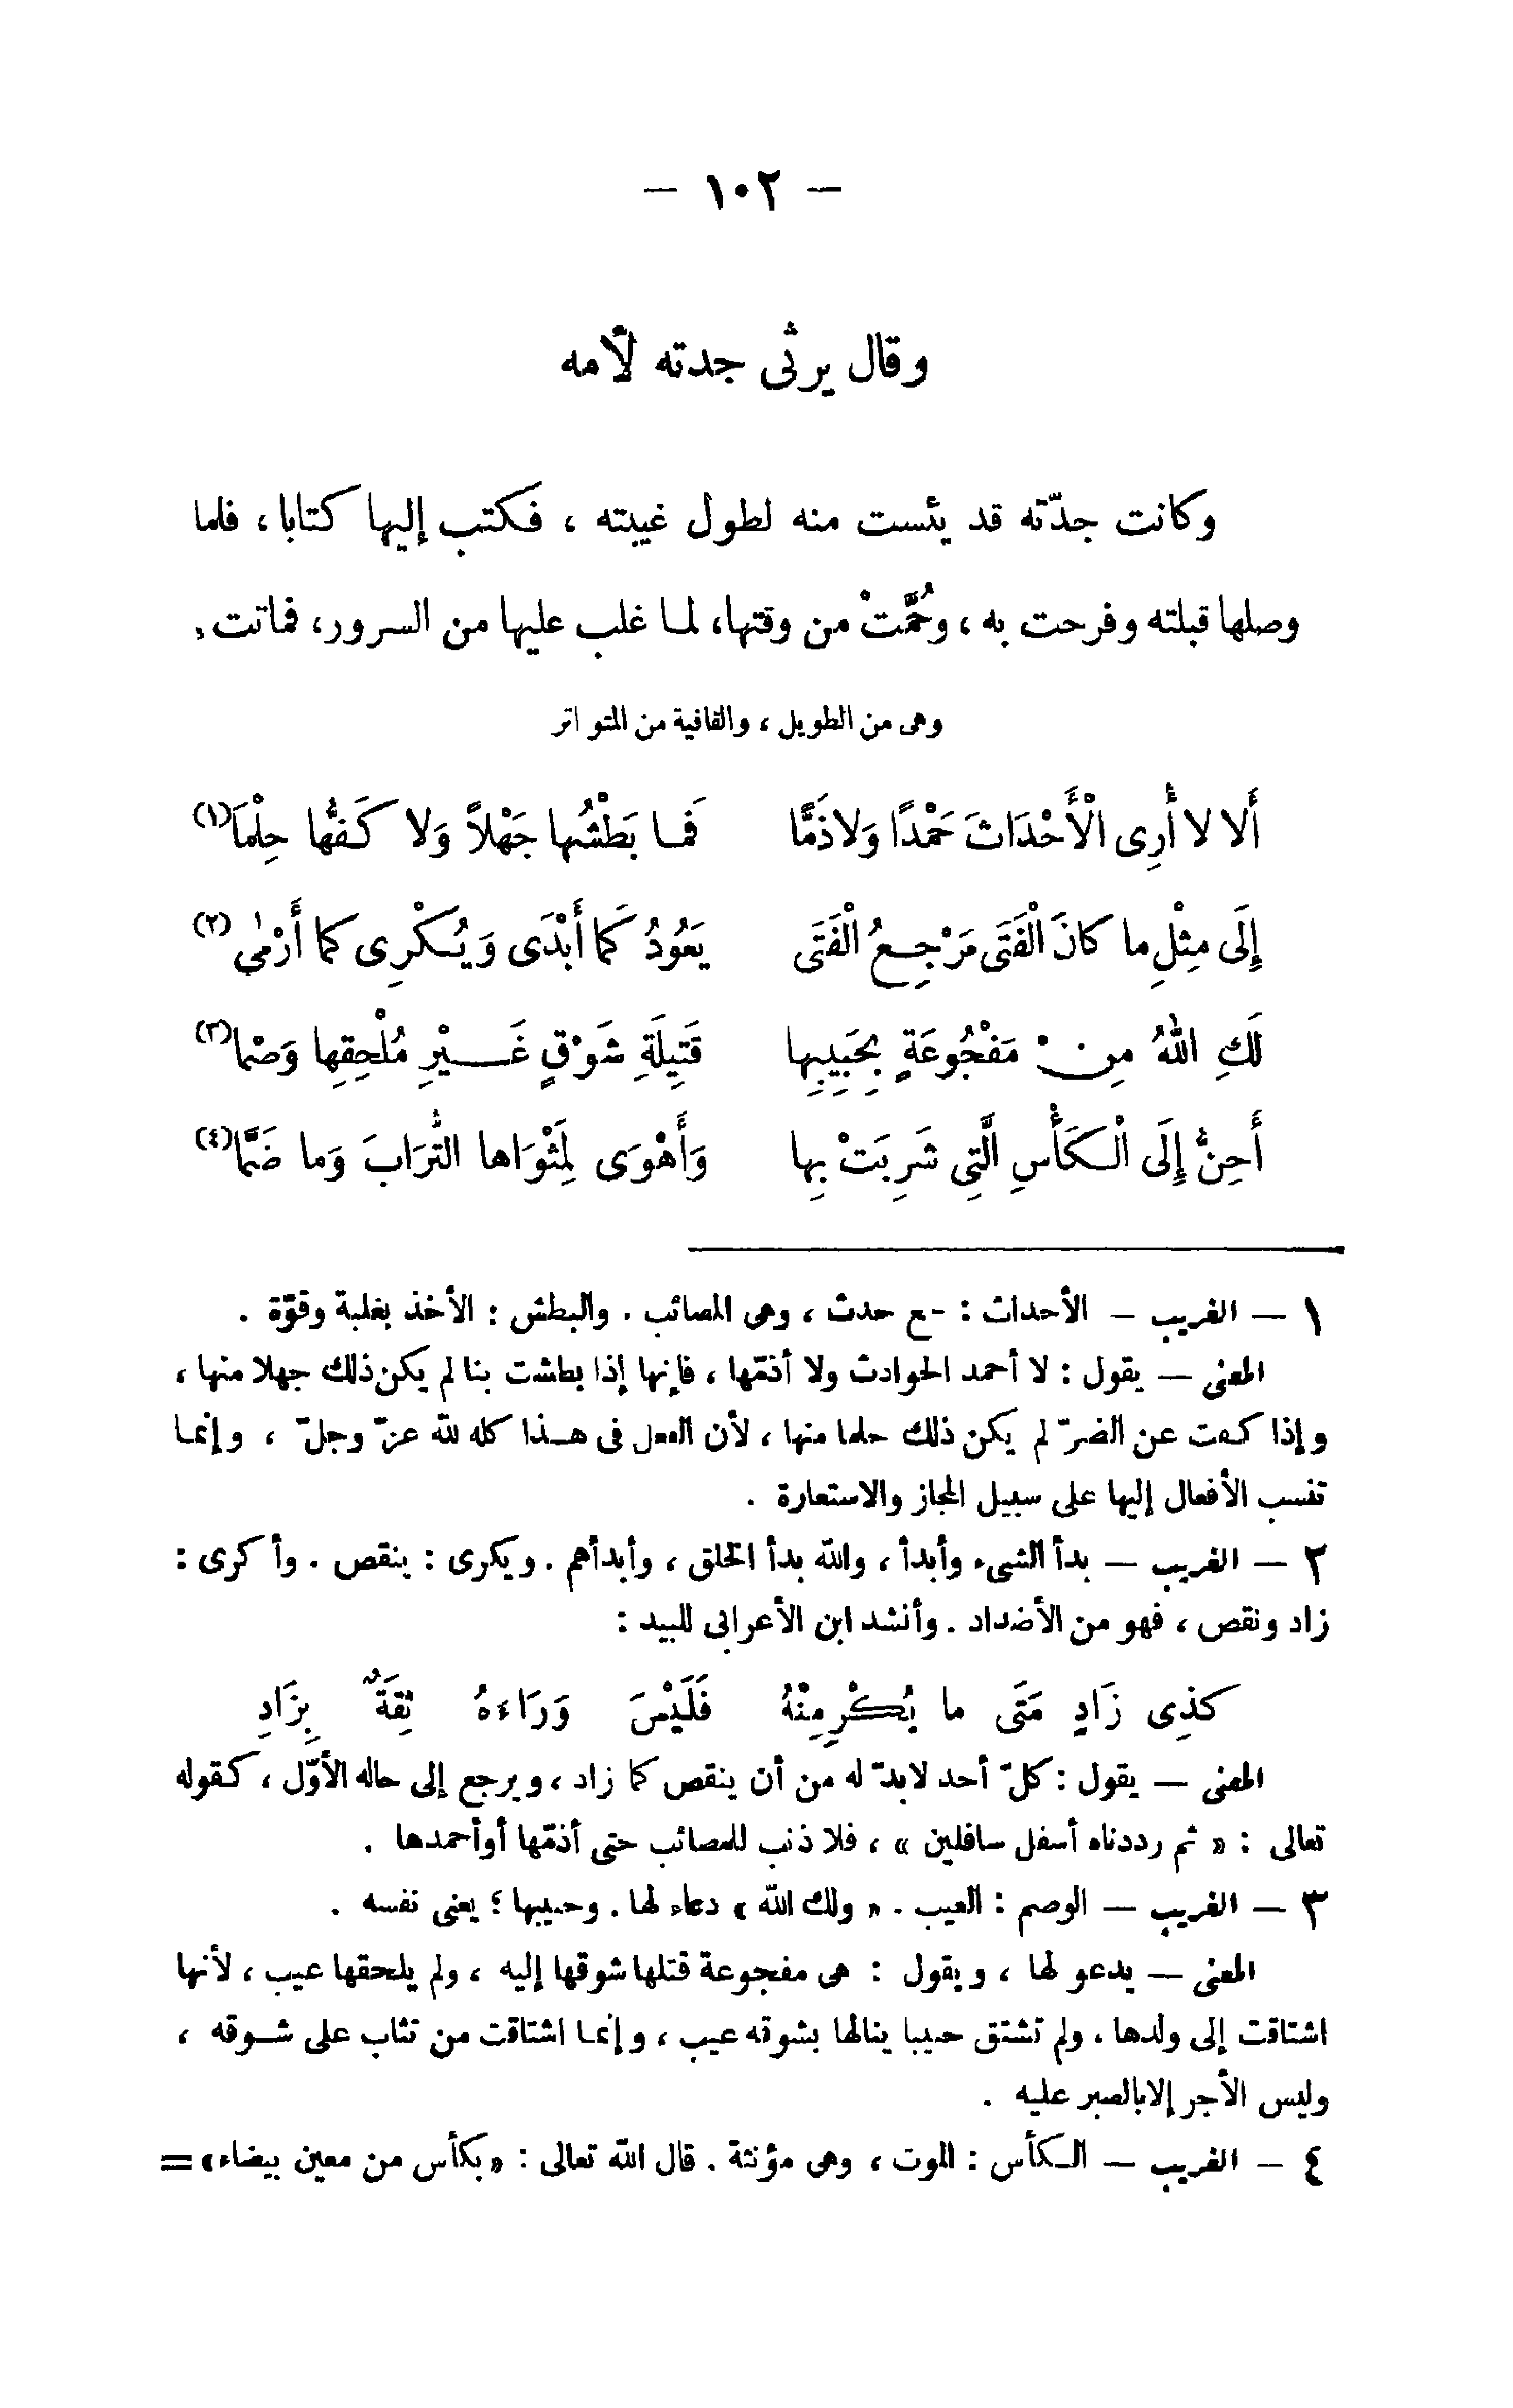 — ١٠٢ —
وقال يرثى جدته لأمه
وكانت جدّته قد يئست منه لطول غيبته ، فكتب إليها كتابا ، فلما
وصلها قبلته وفرحت به ، وحُمَّتْ من وقتها، لما غلب عليها من السرور، فماتت،
وهى من الطويل ، والقافية من المتواتر
أَلا لا أُرِى الْأَحْدَاثَ حَمْدًا وَلا ذَمَّا فَما بَطْشُها جَهْلاً وَلا كَفُّها حِلْمَا(١)
إِلَى مِثْلِ ما كانَ الْفَتَى مَرْجِعُ الْفَتَى يَعُودُ كَمَا أَبْدَى وَيُكْرِى كما أَرْمٰى(٢)
لَكِ اللهُ مِنْ مَفْجُوعَةٍ بِحَبِيبِها قَتِيلَةِ شَوْقٍ غَيْرِ مُلْحِقِها وَصْمَا(٣)
أَحِنُّ إِلَى الْكَأْسِ الَّتِى شَرِبَتْ بِها وَأَهْوَى لِمَثْوَاها التُّرَابَ وَما ضَمَّا(٤)
١ — الغريب — الأحداث : جمع حدث ، وهى المصائب . والبطش : الأخذ بغلبة وقوّة .
المعنى — يقول : لا أحمد الحوادث ولا أذمّها ، فإنها إذا بطشت بنا لم يكن ذلك جهلا منها ،
وإذا كفت عن الضرّ لم يكن ذلك حلما منها ، لأن الفعل فى هذا كله لله عزّ وجلّ ، وإنما
تنسب الأفعال إليها على سبيل المجاز والاستعارة .
٢ — الغريب — بدأ الشىء وأبدأ ، والله بدأ الخلق ، وأبدأهم . ويكرى : ينقص . وأكرى :
زاد ونقص ، فهو من الأضداد . وأنشد ابن الأعرابى للبيد :
كذِى زَادٍ مَتَى ما يُكْرِ مِنْهُ فَلَيْسَ وَرَاءَهُ ثِقَةٌ بِزَادِ
المعنى — يقول : كلّ أحد لابدّ له من أن ينقص كما زاد ، ويرجع إلى حاله الأوّل ، كقوله
تعالى : « ثم رددناه أسفل سافلين » ، فلا ذنب للمصائب حتى أذمّها أو أحمدها .
٣ — الغريب — الوصم : العيب . « ولك الله » دعاء لها . وحبيبها ؛ يعنى نفسه .
المعنى — يدعو لها ، ويقول : هى مفجوعة قتلها شوقها إليه ، ولم يلحقها عيب ، لأنها
اشتاقت إلى ولدها ، ولم تشتق حبيبا ينالها بشوقه عيب ، وإنما اشتاقت من تثاب على شوقه ،
وليس الأجر إلا بالصبر عليه .
٤ — الغريب — الكأس : الموت ، وهى مؤنثة . قال الله تعالى : «بكأس من معين بيضاء» =